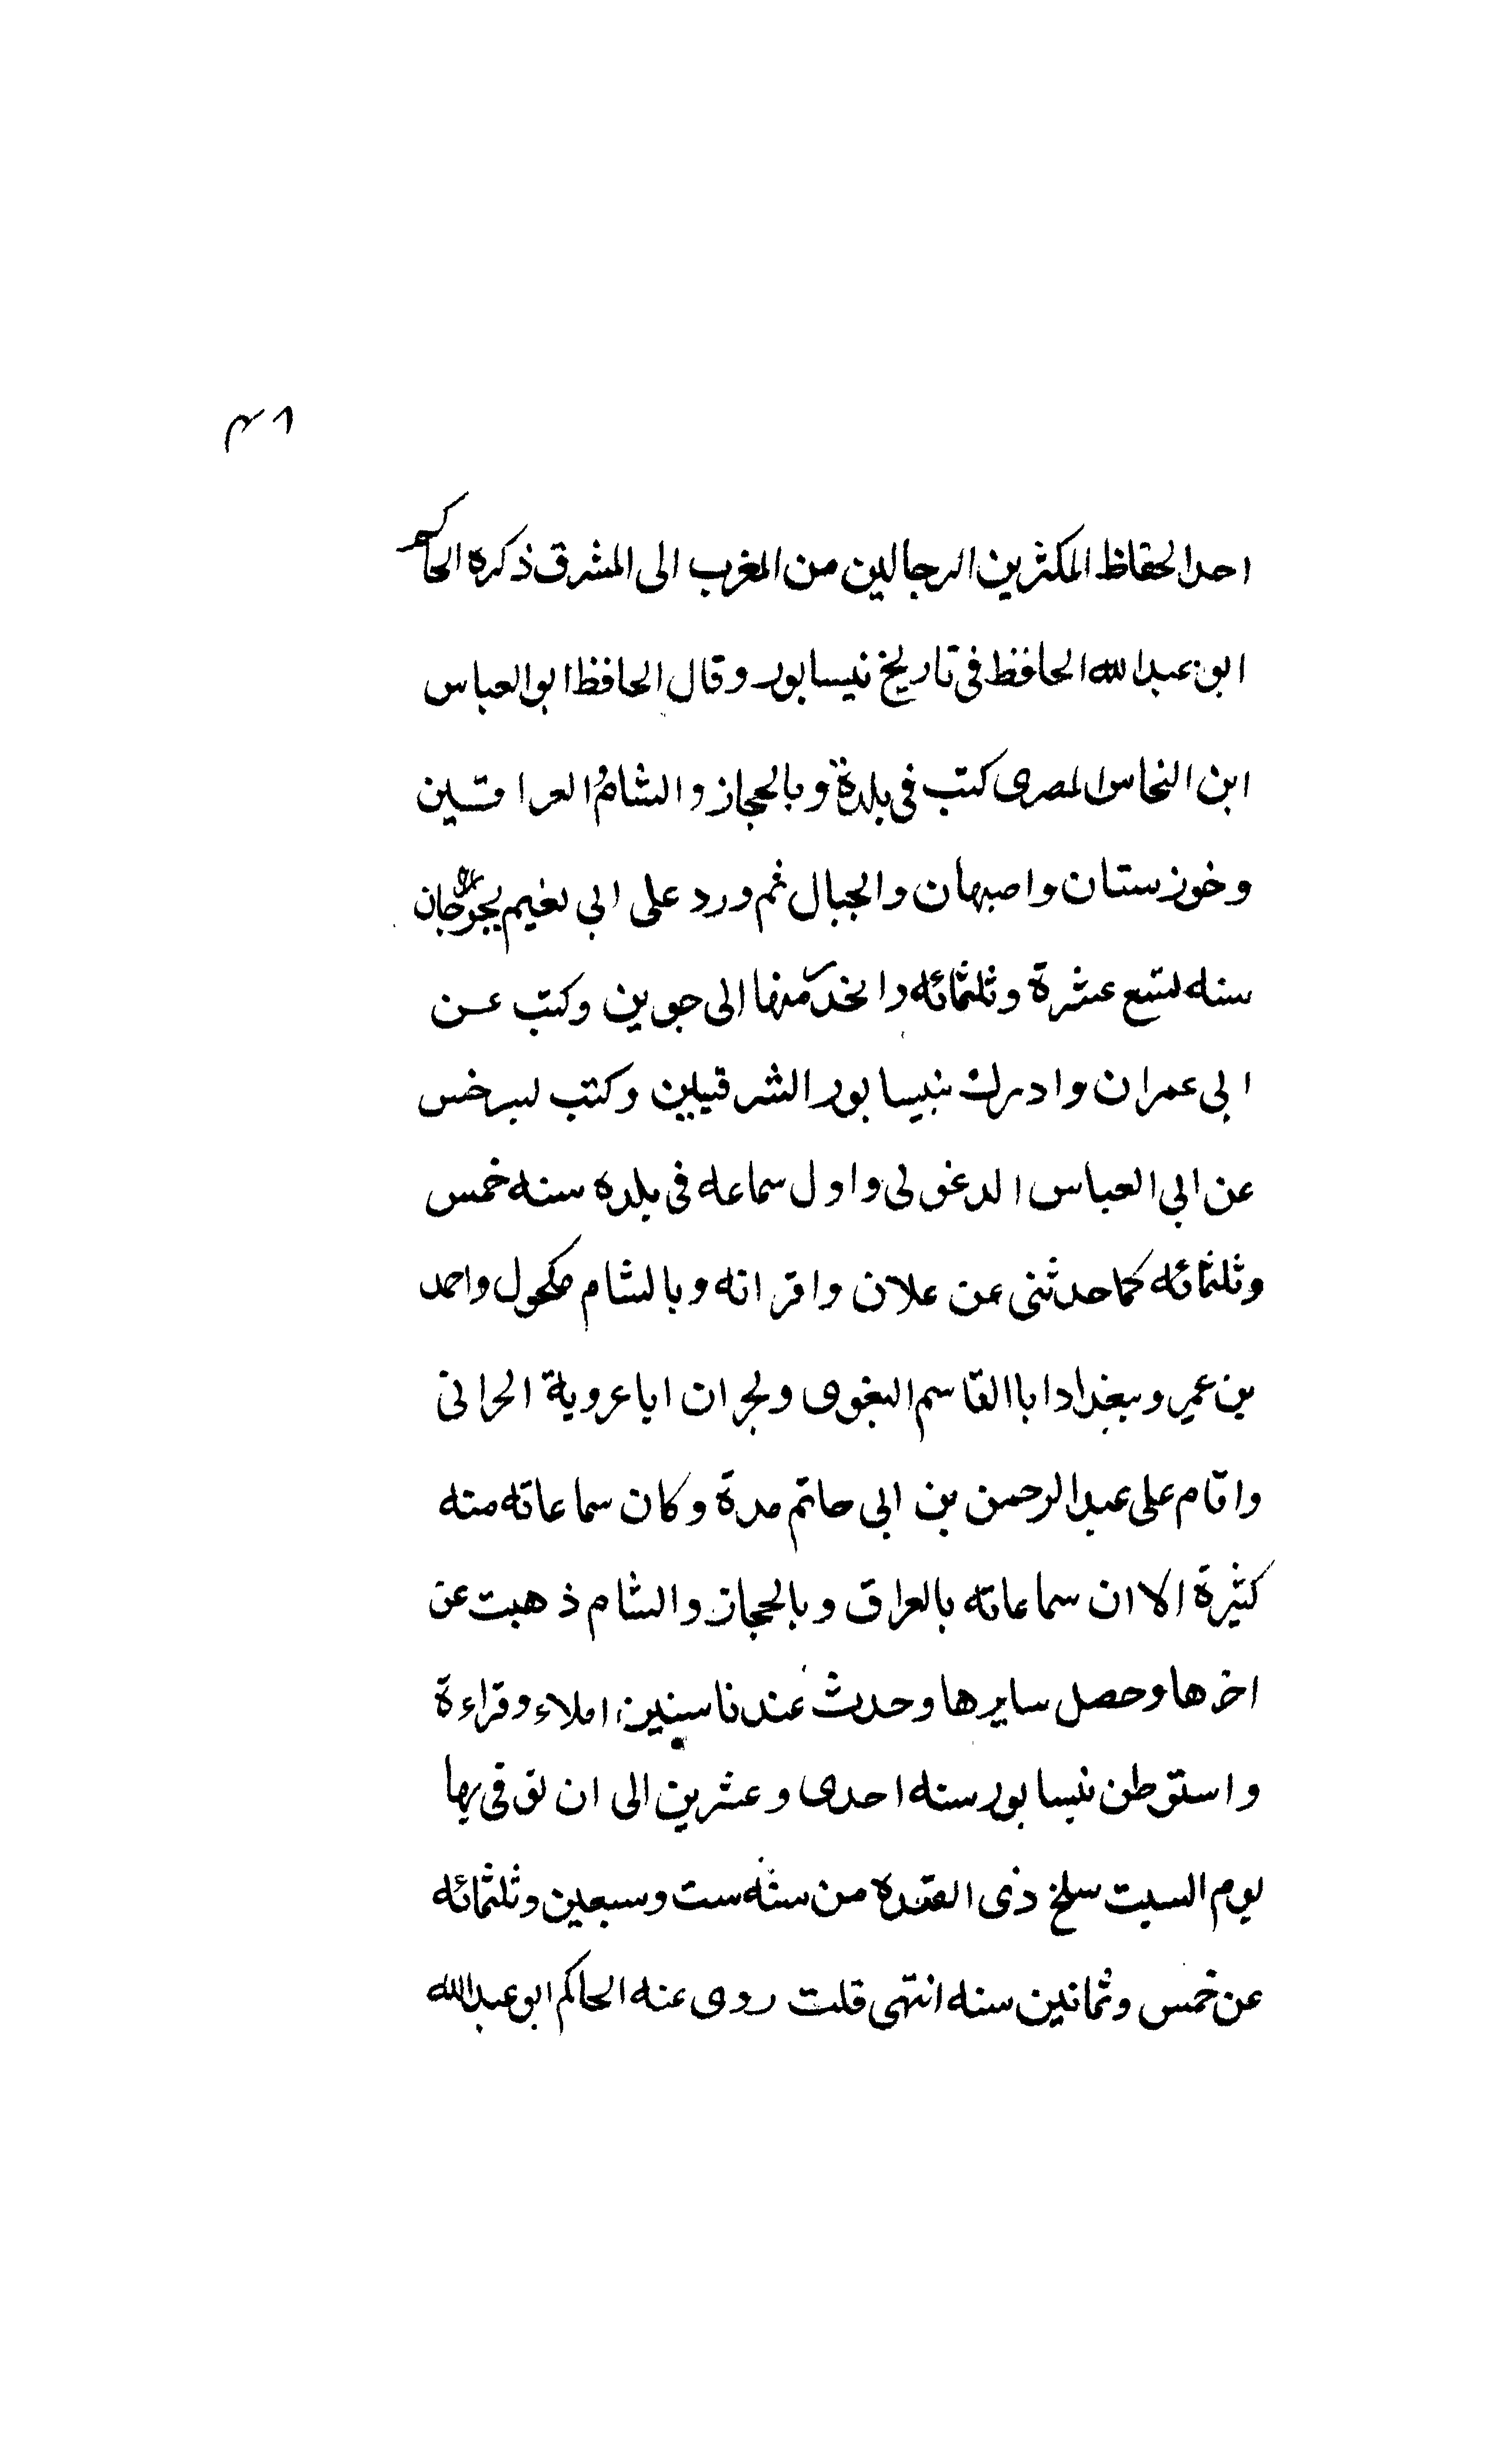 ٤٨
احد الحفاظ المكثرين الرجالين من المغرب الى المشرق ذكره الحاكم
ابو عبد الله الحافظ فى تاريخ نيسابور وقال الحافظ ابو العباس
ابن النحاس المصرى كتب فى بلدة وبالحجاز والشام والعراقين
وخوزستان واصبهان والجبال ثم ورد على ابى نعيم بجرجان
سنه تسع عشرة وثلثمائه وانحدر منها الى جوين وكتب عن
ابى عمران وادرك بنيسابور الشرقيين وكتب لسرخس
عن ابى العباس الدغولى واول سماعه فى بلده سنه خمس
وثلثمائه كما حدثنى عن علان واقرانه وبالشام مكحول واحمد
بن عمير وببغداد ابا القاسم البغوى وبحران ابا عروبة الحرانى
واقام على عبد الرحمن بن ابى حاتم مدة وكان سماعاته منه
كثيرة الا ان سماعاته بالعراق وبالحجاز والشام ذهبت عن
اخرها وحصل سايرها وحدث عندنا سنين املاء وقراءة
واستوطن نيسابور سنه احدى وعشرين الى ان توفى بها
يوم السبت سلخ ذى القعده من سنه ست وسبعين وثلثمائه
عن خمس وثمانين سنه انتهى قلت روى عنه الحاكم ابو عبد الله